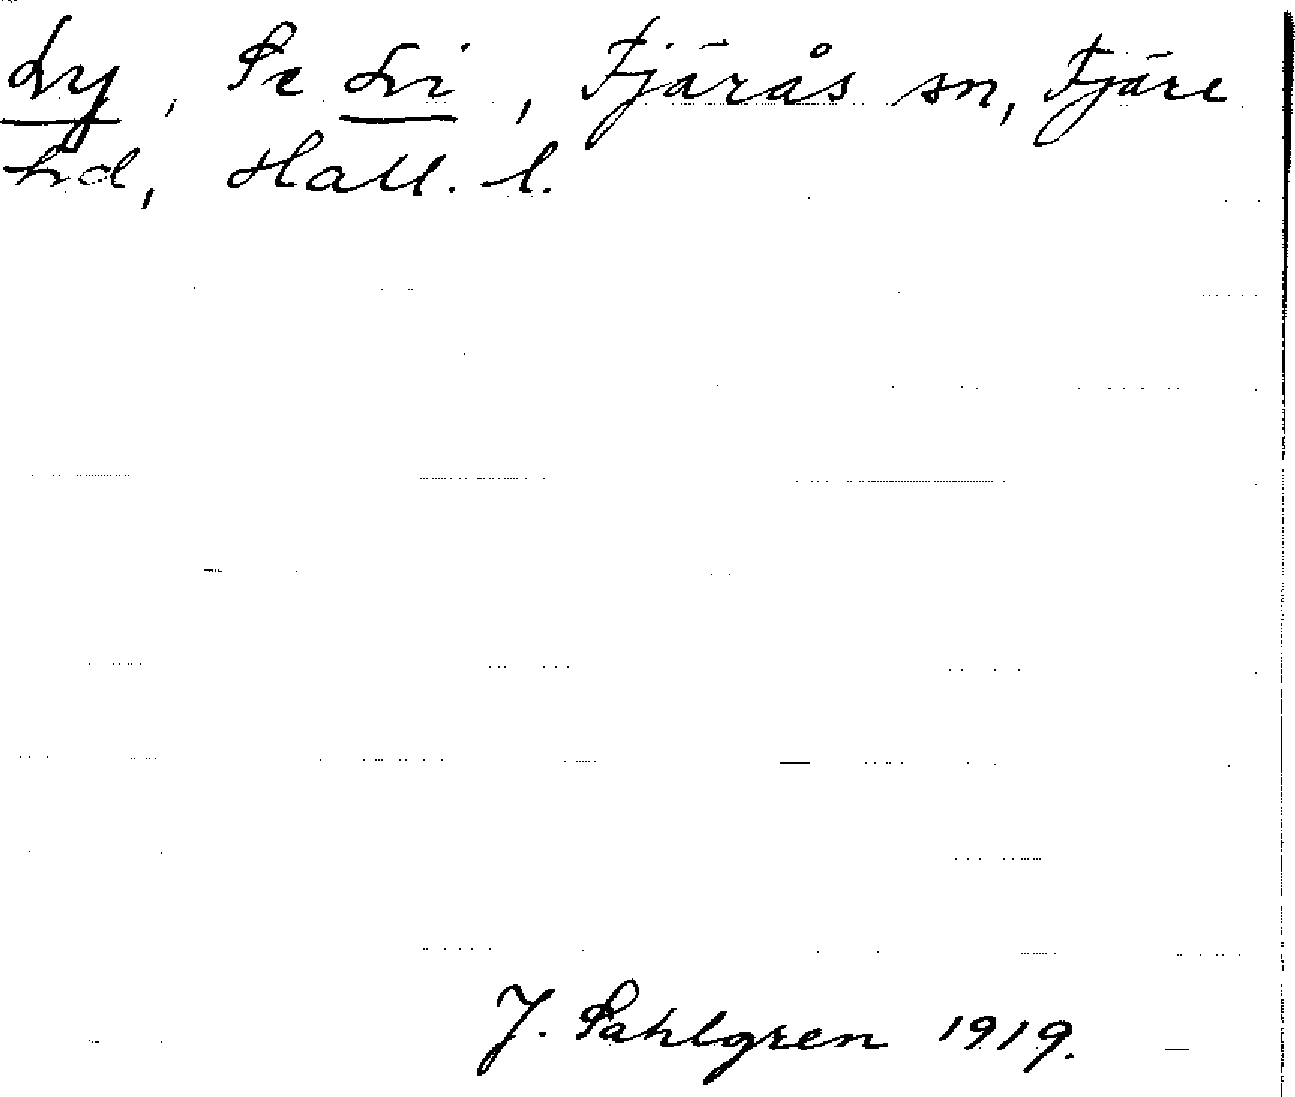 Hy, Se Hi, Fjärås sn, Fjäre
hd, Hall. l.
J. Sahlgren 1919.